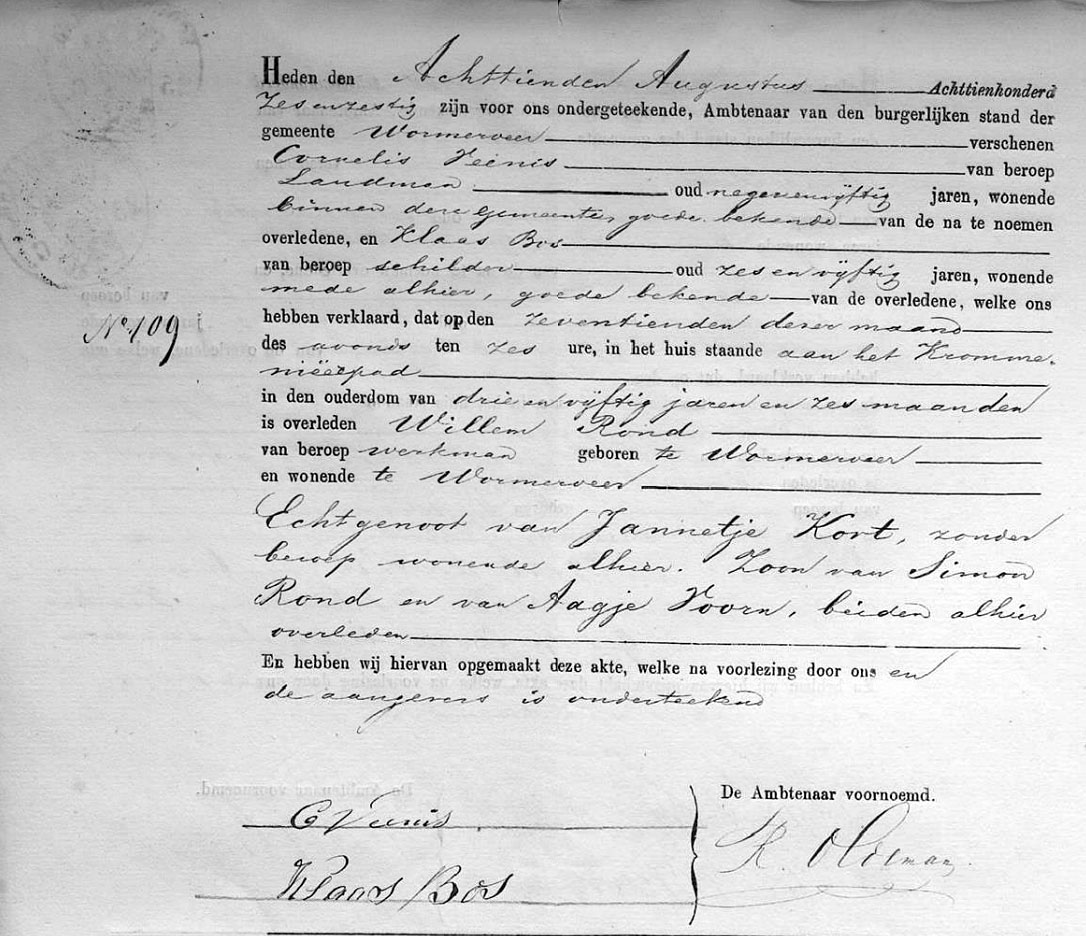 Heden den Achttienden Augustus Achttienhonderd
Zesenzestig zijn voor ons ondergeteekende, Ambtenaar van den burgerlijken stand der
gemeente Wormerveer verschenen
Cornelis van beroep
Landman oud negenenvijftig jaren, wonende
binnen deze Gemeente, goede bekende van de na te noemen
overledene, en Klaas Bos
van beroep schilder oud zesenvijftig jaren, wonende
mede alhier, goede bekende van de overledene, welke ons
hebben verklaard, dat op den zeventienden dezer maand
Nº. 109
des avonds ten zes ure, in het huis staande aan het Kromme-
niëerpad
in den ouderdom van drieenvijftig jaren en zes maanden
is overleden Willem Rond
van beroep werkman geboren te Wormerveer
en wonende te Wormerveer
Echtgenoot van Jannetje Kort, zonder
beroep wonende alhier. Zoon van Simon
Rond en van Aagje Voorn, beiden alhier
overleden
En hebben wij hiervan opgemaakt deze akte, welke na voorlezing door ons en
de aangevers is onderteekend
De Ambtenaar voornoemd.
C
Klaas Bos